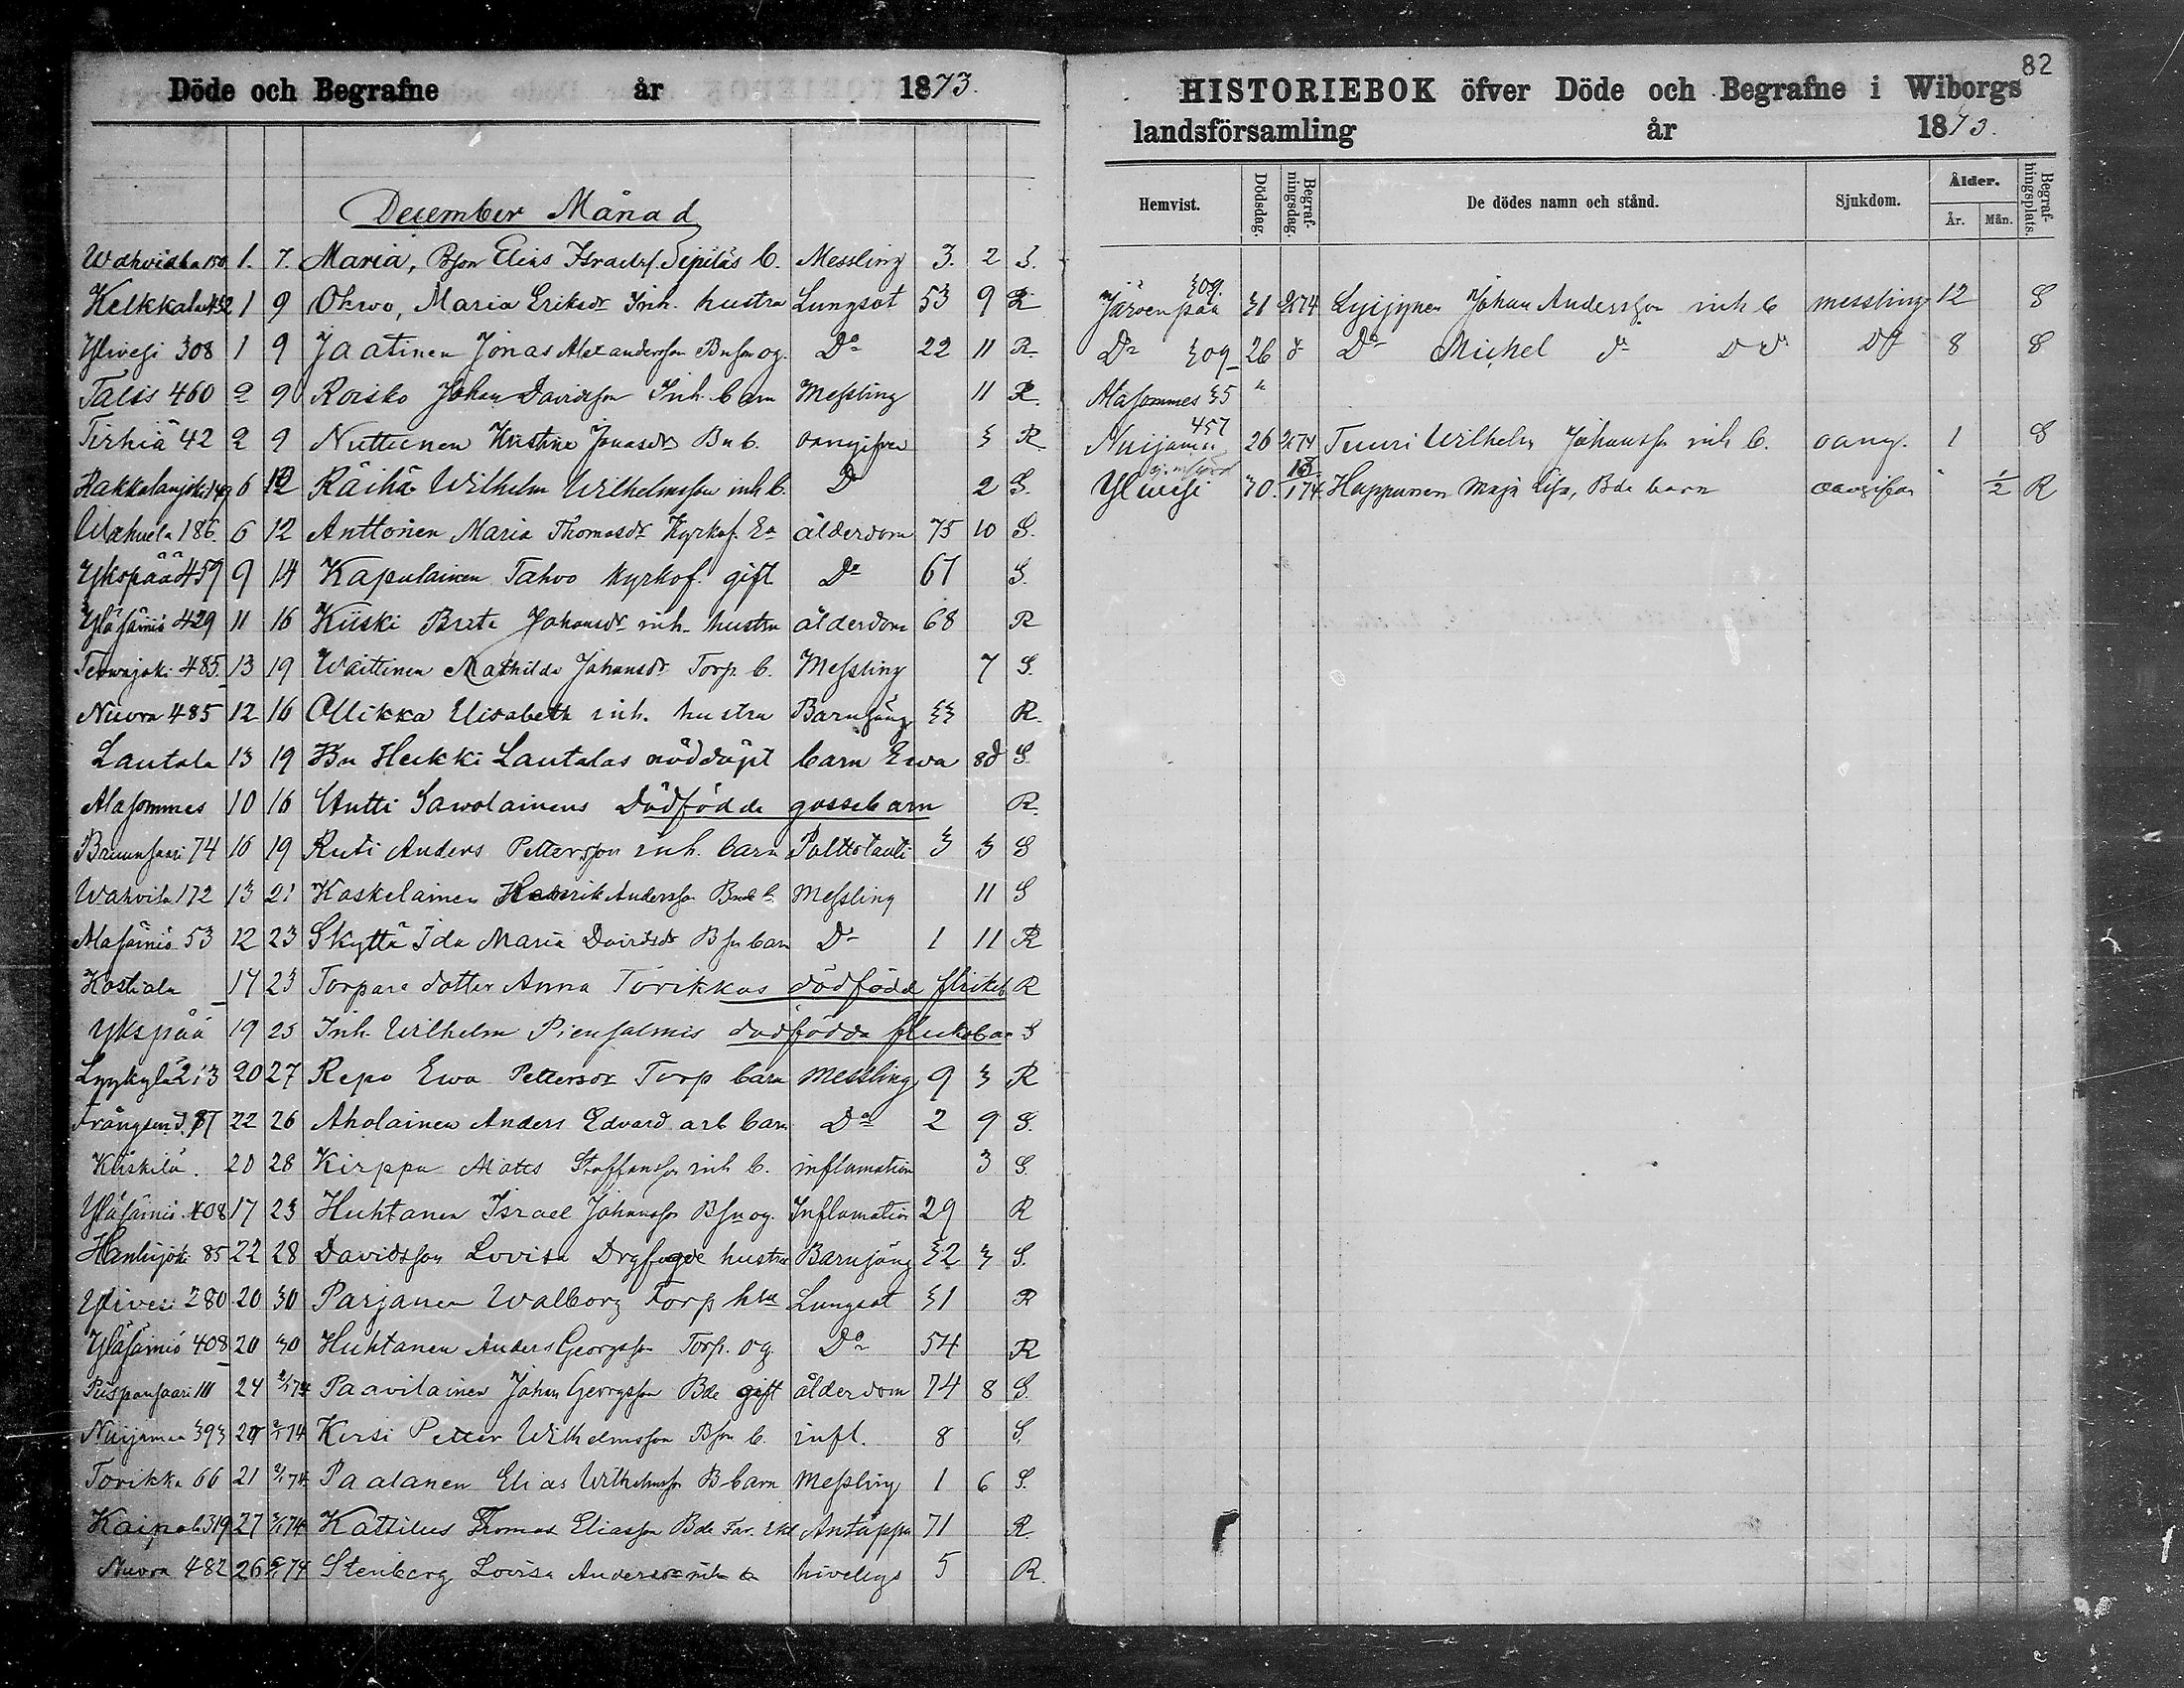 Döde och Begrafne år 1873.
December Månad
Wahviala 150 1. 7. Maria, Bson Elias Israelss. Sipiläs b. Messling 3. 2 S.
Kelkkala 452 1 9 Ohvo, Maria Eriksdr Inh. hustru Lungsot 53 9 R
Ylivesi 308 1 9 Jaatinen Jonas Alexandersson Bnson og. Do 22 11 R
Talis 460 2 9 Roisko Johan Davidsson Inh. barn Messling 11 R
Tirhiä 42 2 9 Nuttunen Kristina Jonasdr Bn b. oangifven 3 R
Hakkalanjoki 149 6 12 Räihä Wilhelm Wilhelmsson inh b. Do 2 S.
186. 6 12 Anttonen Maria Thomasdr Kyrkof. Ea ålderdom 75 10 S.
Ykspää 459 9 14 Kapulainen Tahvo kyrkof. gift Do 67 S.
Yläsäiniö 429 11 16 Kiiski Brita Johansdr inh. hustru ålderdom 68 R
Terwajoki 485. 13 19 Waittinen Mathilda Johansdr Torp. b. Messling 7 S.
Nuora 485 12 16 Ollikka Elisabeth inh. hustru Barnsäng 33 R.
Lautala 13 19 Bn Heikki Lautalas nöddöpt barn Ewa 8d S.
Alasommes 10 16 Antti Sawolainens Dödfödde gossebarn R.
74 16 19 Ruti Anders Pettersson inh. barn Polttotauti 3 3 S
Wahvila 172 13 21 Kaskelainen Hendrik Andersson Bnde b. Messling 11 S
Alasäiniö 53 12 23 Skyttä Ida Maria Davidsdr Bsn barn Do 1 11 R
Kostiala 17 23 Torpare dotter Anna Torikkas dödfödd flickeb R
Ykspää 19 25 Inh. Wilhelm Piensalmis dödfödda flickebar S
Lyykylä 213 20 27 Repo Ewa Pettersdr Torp barn Messling 9 3 R
Trångsund 87 22 26 Aholainen Anders Edvard arb barn Do 2 9 S.
Kiiskilä. 20 28 Kirppu Matts Staffansson inh b. inflamation 3 S.
Yläsäiniö 408 17 23 Huhtanen Israel Johansson Bsn og. Inflamation 29 R
85 22 28 Davidsson Lovisa hustru Barnsäng 32 3 S.
Ylivesi 280 20 30 Parjanen Walborg Torp hru Lungsot 31 R
Yläsäiniö 408 20 30 Huhtanen Anders Georgsson Torp. og. Do 54 R
Piispansaari 111 24 2/1 74 Paavilainen Johan Georgsson Bde gift ålderdom 74 8 S.
Nuijamaa 393 24 2/1 74 Kersi Petter Wilhelmsson Bson b. infl. 8 S.
Torikka 66 21 2/1 74 Paalanen Elias Wilhelmsson B barn Messling 1 6 S.
Kaipola 319 27 2/1 74 Kattilus Thomas Eliasson Bde Far. Ekl Antäppa 71 R.
Nuora 482 26 2/1 74 Stenberg Lovisa Andersdr inh b 5 R.
82
HISTORIEBOK öfver Döde och Begrafne i Wiborgs
landsförsamling år 1873.
Hemvist. Dödsdag. Begrafningsdag. De dödes namn och stånd. Sjukdom. Ålder. Begrafningsplats.
År. Mån.
309.
Järvenpää 31 2/1 74 Lyijynen Johan Andersson inh b messling 12 S
Do 309 26 do Do Michel do Do 8 S
Alasommes 35 "
457
Nuijamaa 26 2/1 74 Tuuri Wilhelm Johansson inh b. oang. 1 S
Ylivesi 30. 1 74 Happonen Maja Lisa, Bde barn oangifven 1/2 R